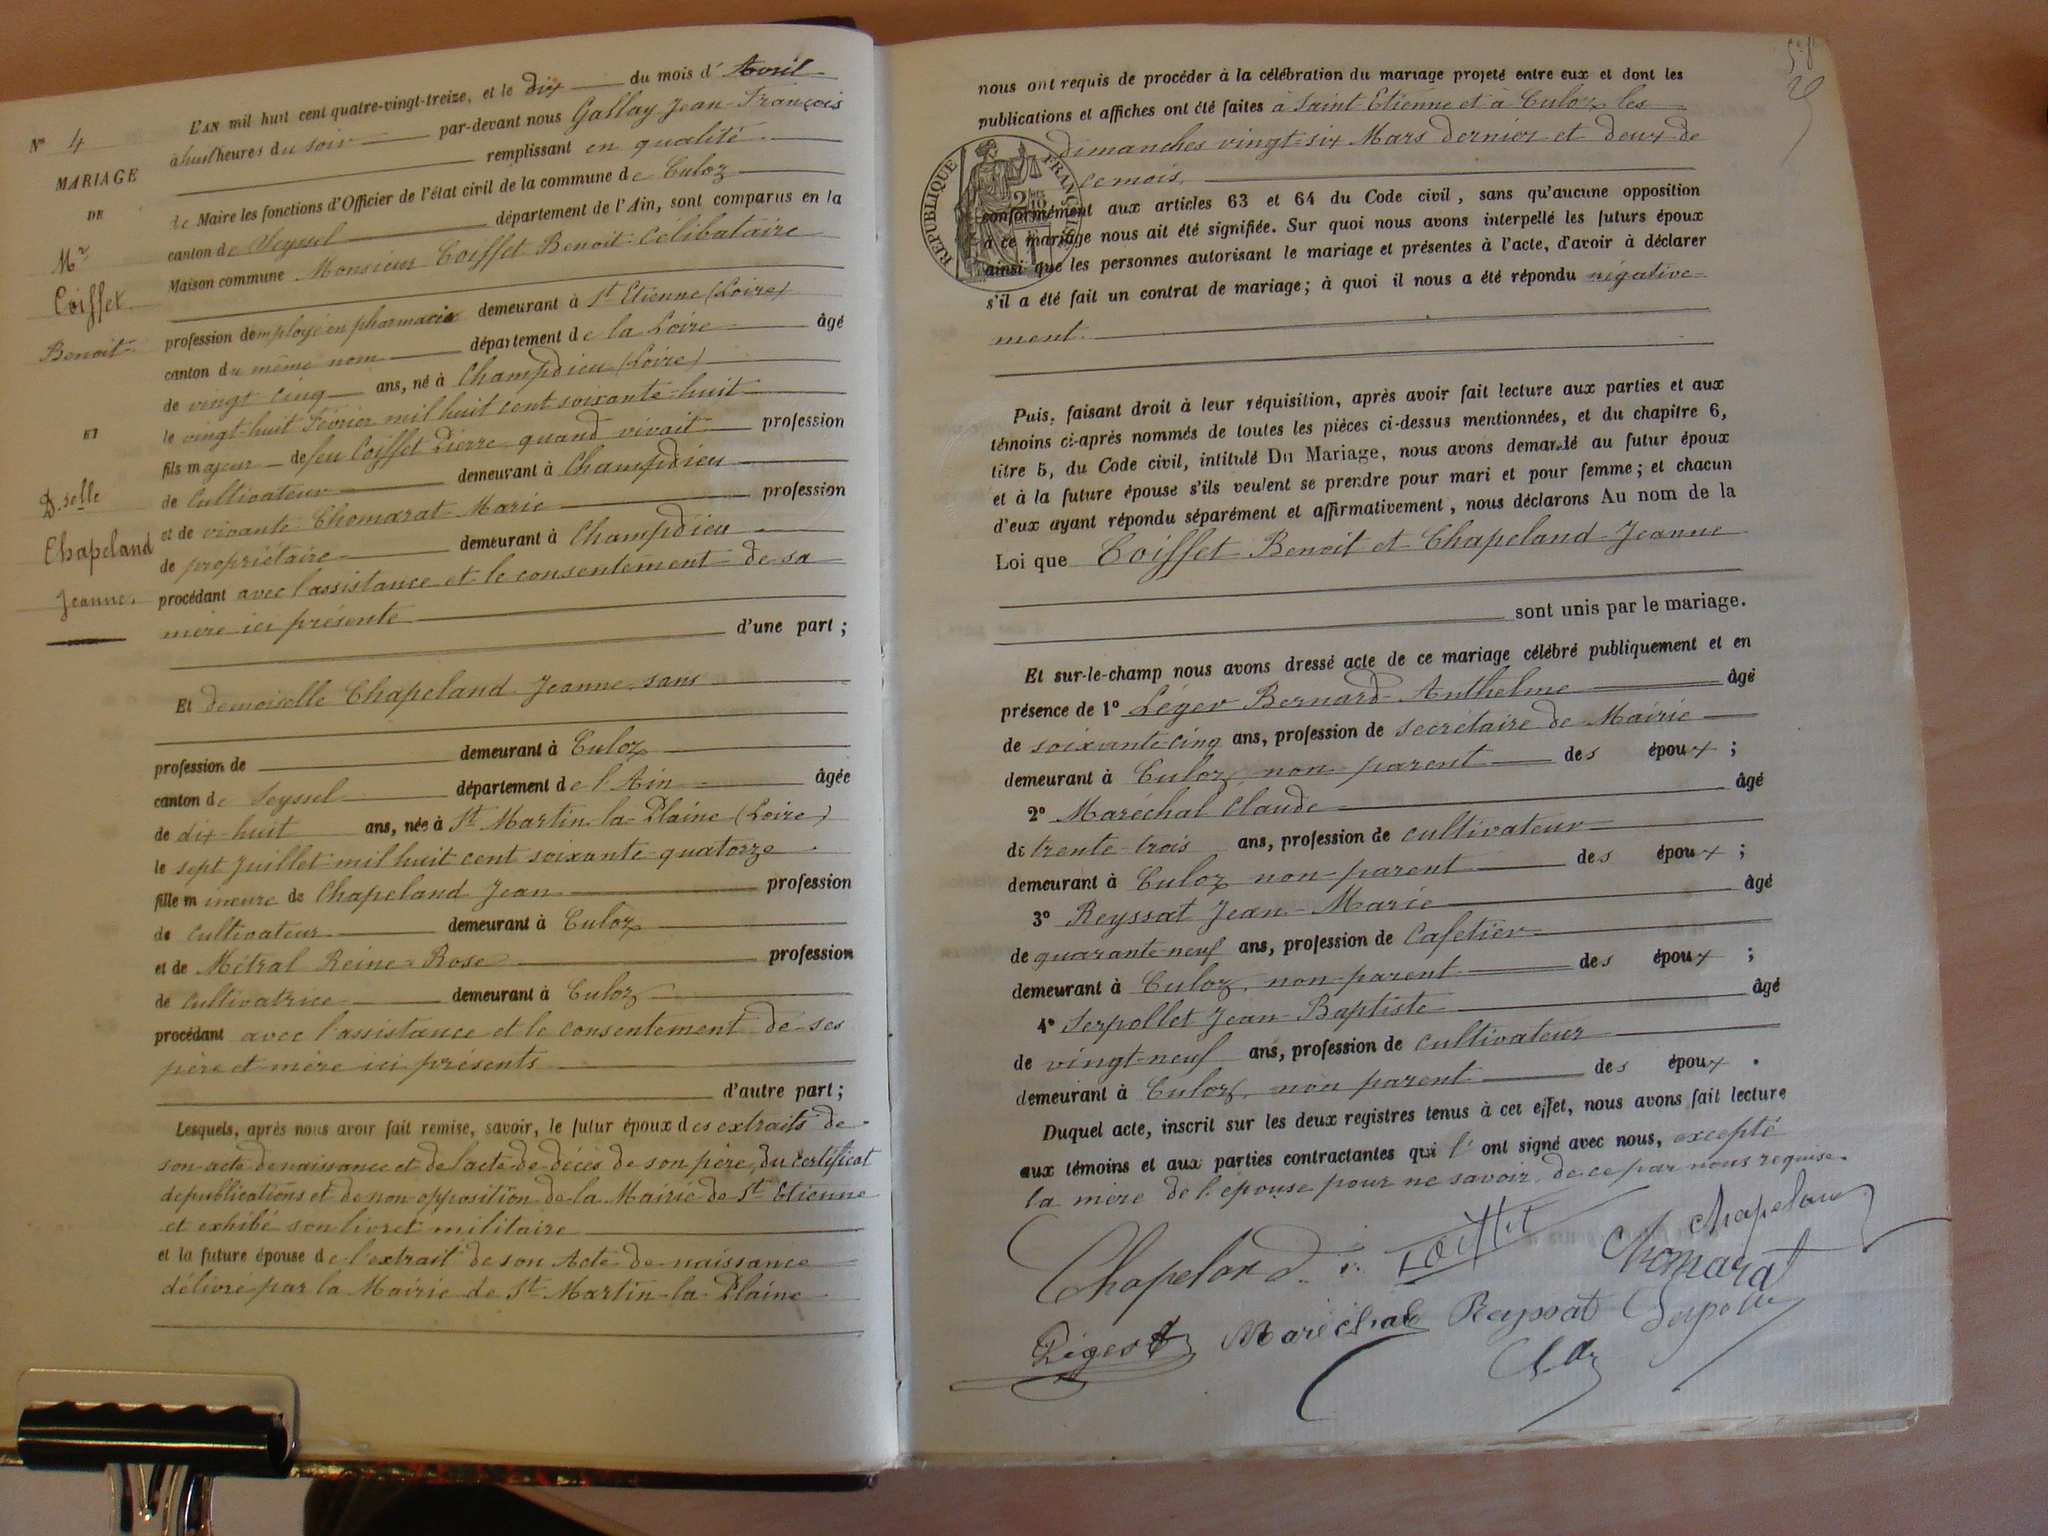 N° 4
MARIAGE
DE
Mr
Coiffet
Benoit
ET
Dselle
Chapeland
Jeanne.
L'AN mil huit cent quatre-vingt-treize, et le dix du mois d' Avril
à huit heures du soir par-devant nous Gallay Jean-François
remplissant en qualité
de Maire les fonctions d'Officier de l'état civil de la commune de Culoz
canton de Seyssel département de l'Ain, sont comparus en la
Maison commune Monsieur Coiffet Benoit Célibataire
profession d'employé en pharmacie demeurant à St Etienne (Loire)
canton du même nom département de la Loire âgé
de vingt cinq ans, né à Champdieu (Loire)
le vingt-huit Février mil huit cent soixante-huit
fils majeur de feu Coiffet Pierre quand vivait profession
de Cultivateur demeurant à Champdieu
et de vivante Thomarat Marie profession
de propriétaire demeurant à Champdieu
procédant avec l'assistance et le consentement de sa
mère ici présente
d'une part ;
Et demoiselle Chapeland Jeanne, sans
profession de demeurant à Culoz
canton de Seyssel département de l'Ain âgée
de dix-huit ans, née à St Martin-la-Plaine (Loire)
le sept Juillet mil huit cent soixante-quatorze
fille mineure de Chapeland Jean profession
de cultivateur demeurant à Culoz
et de Métral Reine-Rose profession
de cultivatrice demeurant à Culoz
procédant avec l'assistance et le consentement de ses
père et mère ici présents
d'autre part ;
Lesquels, après nous avoir fait remise, savoir, le futur époux des extraits de
son acte de naissance et de l'acte de décès de son père, du certificat
de publications et de non opposition de la Mairie de St Etienne
et exhibé son livret militaire
et la future épouse de l'extrait de son Acte de naissance
délivré par la Mairie de St Martin-la-Plaine
nous ont requis de procéder à la célébration du mariage projeté entre eux et dont les
publications et affiches ont été faites à Saint-Etienne et à Culoz les
dimanches vingt-six Mars dernier et deux de
ce mois,
RÉPUBLIQUE FRANÇAISE
conformément aux articles 63 et 64 du Code civil, sans qu'aucune opposition
à ce mariage nous ait été signifiée. Sur quoi nous avons interpellé les futurs époux
ainsi que les personnes autorisant le mariage et présentes à l'acte, d'avoir à déclarer
s'il a été fait un contrat de mariage ; à quoi il nous a été répondu négative-
ment.
Puis, faisant droit à leur réquisition, après avoir fait lecture aux parties et aux
témoins ci-après nommés de toutes les pièces ci-dessus mentionnées, et du chapitre 6,
titre 5, du Code civil, intitulé Du Mariage, nous avons demandé au futur époux
et à la future épouse s'ils veulent se prendre pour mari et pour femme ; et chacun
d'eux ayant répondu séparément et affirmativement, nous déclarons Au nom de la
Loi que Coiffet Benoit et Chapeland Jeanne
sont unis par le mariage.
Et sur-le-champ nous avons dressé acte de ce mariage célébré publiquement et en
présence de 1° Léger Bernard Anthelme âgé
de soixante-cinq ans, profession de secrétaire de Mairie
demeurant à Culoz, non parent des époux ;
2° Maréchal Claude âgé
de trente-trois ans, profession de cultivateur
demeurant à Culoz non parent des époux ;
3° Reyssat Jean-Marie âgé
de quarante-neuf ans, profession de Cafetier
demeurant à Culoz, non parent des époux ;
4° Serpollet Jean-Baptiste âgé
de vingt-neuf ans, profession de cultivateur
demeurant à Culoz, non parent des époux .
Duquel acte, inscrit sur les deux registres tenus à cet effet, nous avons fait lecture
aux témoins et aux parties contractantes qui l' ont signé avec nous, excepté
la mère de l'épouse pour ne savoir, de ce par nous requise.
Chapeland Coiffet Chapeland
Thomarat
Léger Maréchal Reyssat Serpollet